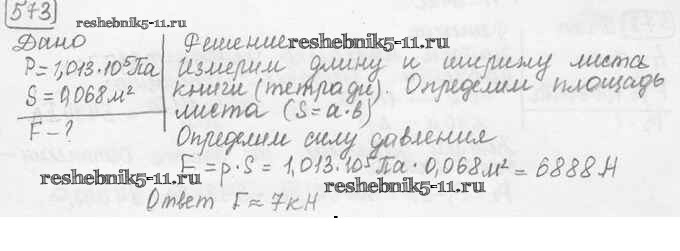 573 reshebnik5-11.ru
Дано Решение reshebnik5-11.ru
P=1,013·10⁵Па Измерим длину и ширину листа
S=0,068м² книги (тетради). Определим площадь
F-? листа (S=a·b)
Определим силу давления
F=p·S = 1,013·10⁵Па·0,068м² = 6888Н
reshebnik5-11.ru reshebnik5-11.ru
Ответ F≈7кН